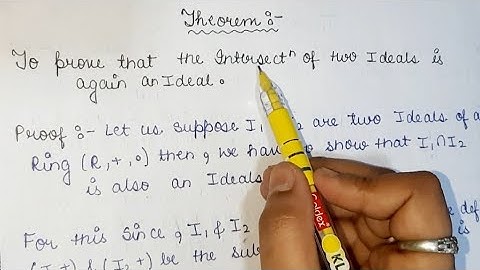 Theorem :-
To prove that the Intersectⁿ of two Ideals is
again an Ideal.
Proof :- Let us suppose I₁ I₂ are two Ideals of a
Ring (R, +, ∘) then, we have to show that I₁∩I₂
is also an Ideal
For this Since, I₁ & I₂ def
& (I₂ +) be the sub is